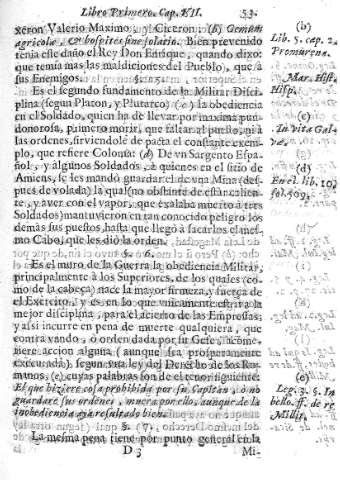 Libro Primero. Cap. VII. 53.
xeron Valerio Maximo, y Ciceron: (b) Gemunt
agricolæ, & hospites sine solatio. Bien prevenido
tenia este daño el Rey Don Enrique, quando dixo:
que temia mas las maldiciones del Pueblo, que à
sus Enemigos. §. 5.
Es el segundo fundamento de la Militar Disci-
plina (segun Platon, y Plutarco) (c) la obediencia
en el Soldado, quien ha de llevar por maxima pun-
donorosa, primero morir, que faltar al puesto, ni à
las ordenes, sirviendole de pacta el constante exem-
plo, que refiere Coloma: (d) De vn Sargento Espa-
ñol, y algunos Soldados, à quienes en el sitio de
Amiens, se les mandò guardar el de vna Mina (des-
pues de volada) la qual (no obstante de està calien-
te, y aver con el vapor, que exalaba muerto à tres
Soldados) mantuvieron en tan conocido peligro los
demàs sus puestos, hasta que llegò à sacarlos el mes-
mo Cabo, que les diò la orden.
§. 6.
Es el muro de la Guerra la obediencia Militar,
principalmente à los Superiores, de los quales (co-
mo de la cabeça) nace la mayor firmeza, y fuerça de
el Exercito, y es en lo que vnicamente estriva la
mejor disciplina, para el acierto de las Empressas;
y assi incurre en pena de muerte qualquiera, que
contra vando, ò orden dada por su Gefe, acome-
tiere accion alguna (aunque sea prosperamente
executada) segun vna ley del Derecho de los Ro-
manos, (e) cuyas palabras son de el tenor siguiente:
El que hiziere cosa prohibida por su Capitan, ò no
guardare sus ordenes, muera por ello, aunque de la
inobediencia aya resultado bien.
§. 7.
La mesma pena tiene por punto general en la
D 3 Mi-
(b)
Lib. 5. cap. 2.
Mar. Hist.
Hisp.
(c)
In vita Gal-
(d)
En el lib. 10.
fol. 509.
(e)
Leg. 3. §. In
bello. ff. de re
Millit.